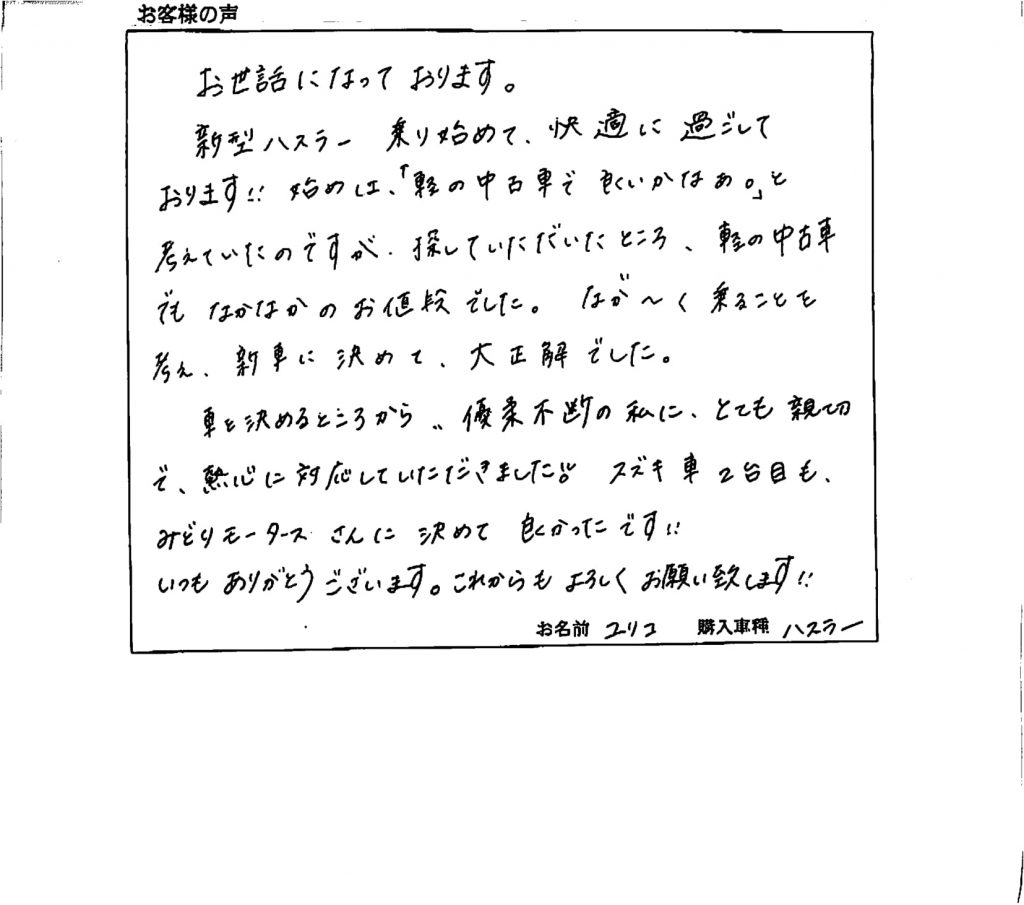 お客様の声
お世話になっております。
新型ハスラー 乗り始めて、快適に過ごして
おります!! 始めは、「軽の中古車で良いかなぁ。」と
考えていたのですが、探していただいたところ、軽の中古車
でもなかなかのお値段でした。なが〜く乗ることを
考え、新車に決めて、大正解でした。
車を決めるところから、優柔不断の私に、とても親切
で、熱心に対応していただきました!! スズキ車2台目も、
みどりモータースさんに決めて良かったです!!
いつもありがとうございます。これからもよろしくお願い致します!!
お名前 ユリコ 購入車種 ハスラー